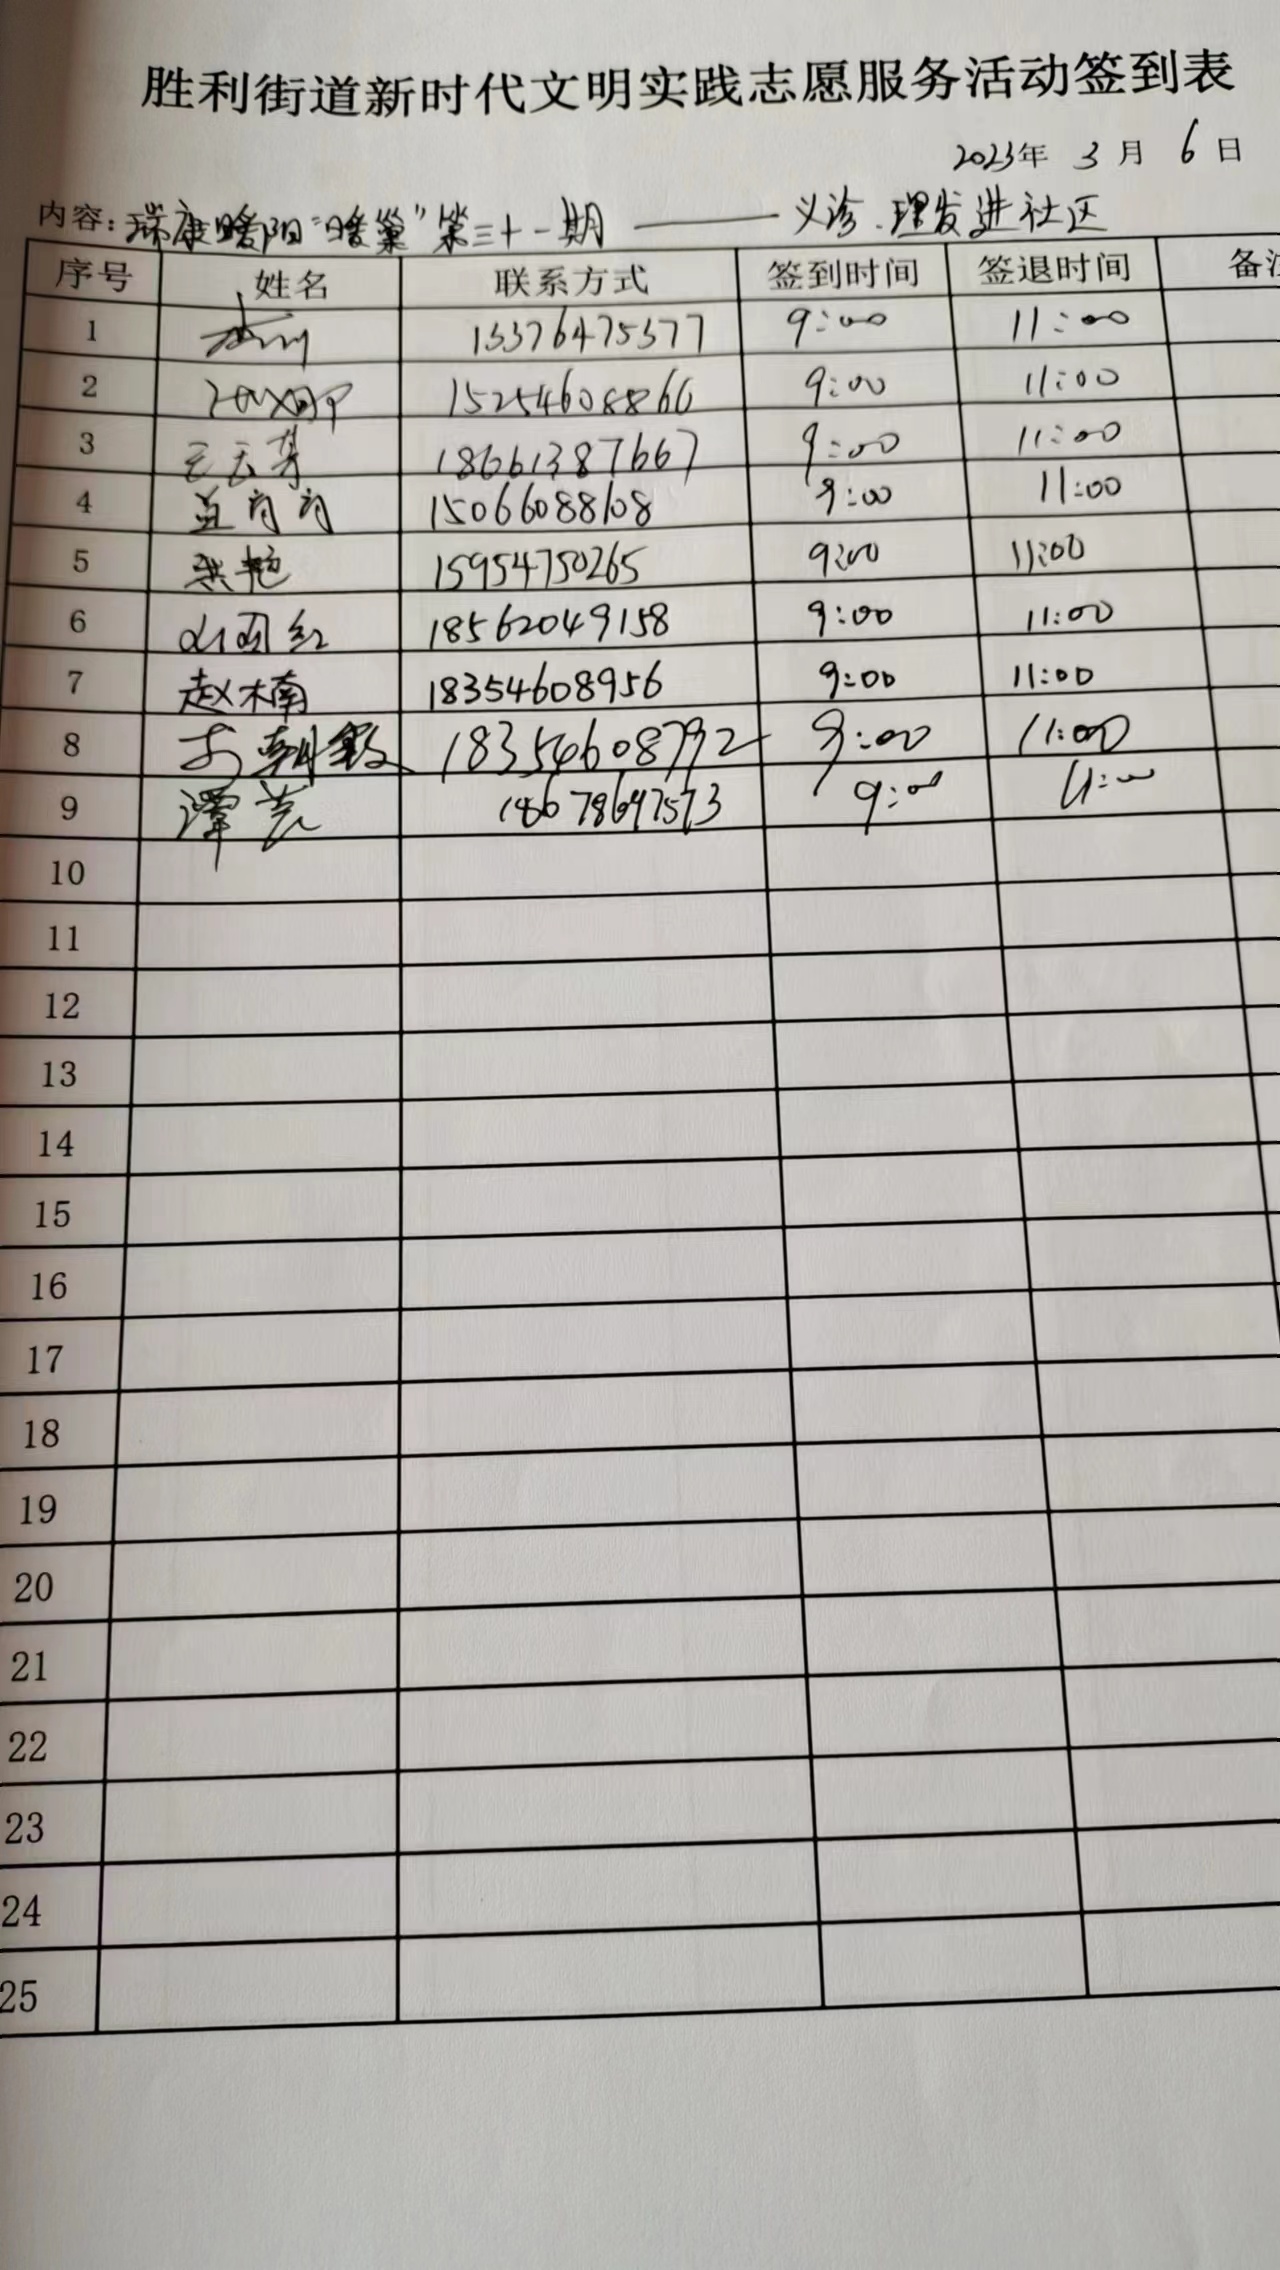 胜利街道新时代文明实践志愿服务活动签到表
2023年 3 月 6 日
内容：瑞康暖阳“暖巢”第三十一期 —— 义诊.理发进社区
序号 姓名 联系方式 签到时间 签退时间 备注
1 13376475377 9:00 11:00
2 15254608866 9:00 11:00
3 18661387667 9:00 11:00
4 15066088108 9:00 11:00
5 15954750265 9:00 11:00
6 18562049158 9:00 11:00
7 赵木南 18354608956 9:00 11:00
8 18354608792 9:00 11:00
9 9:00 11:00
10
11
12
13
14
15
16
17
18
19
20
21
22
23
24
25